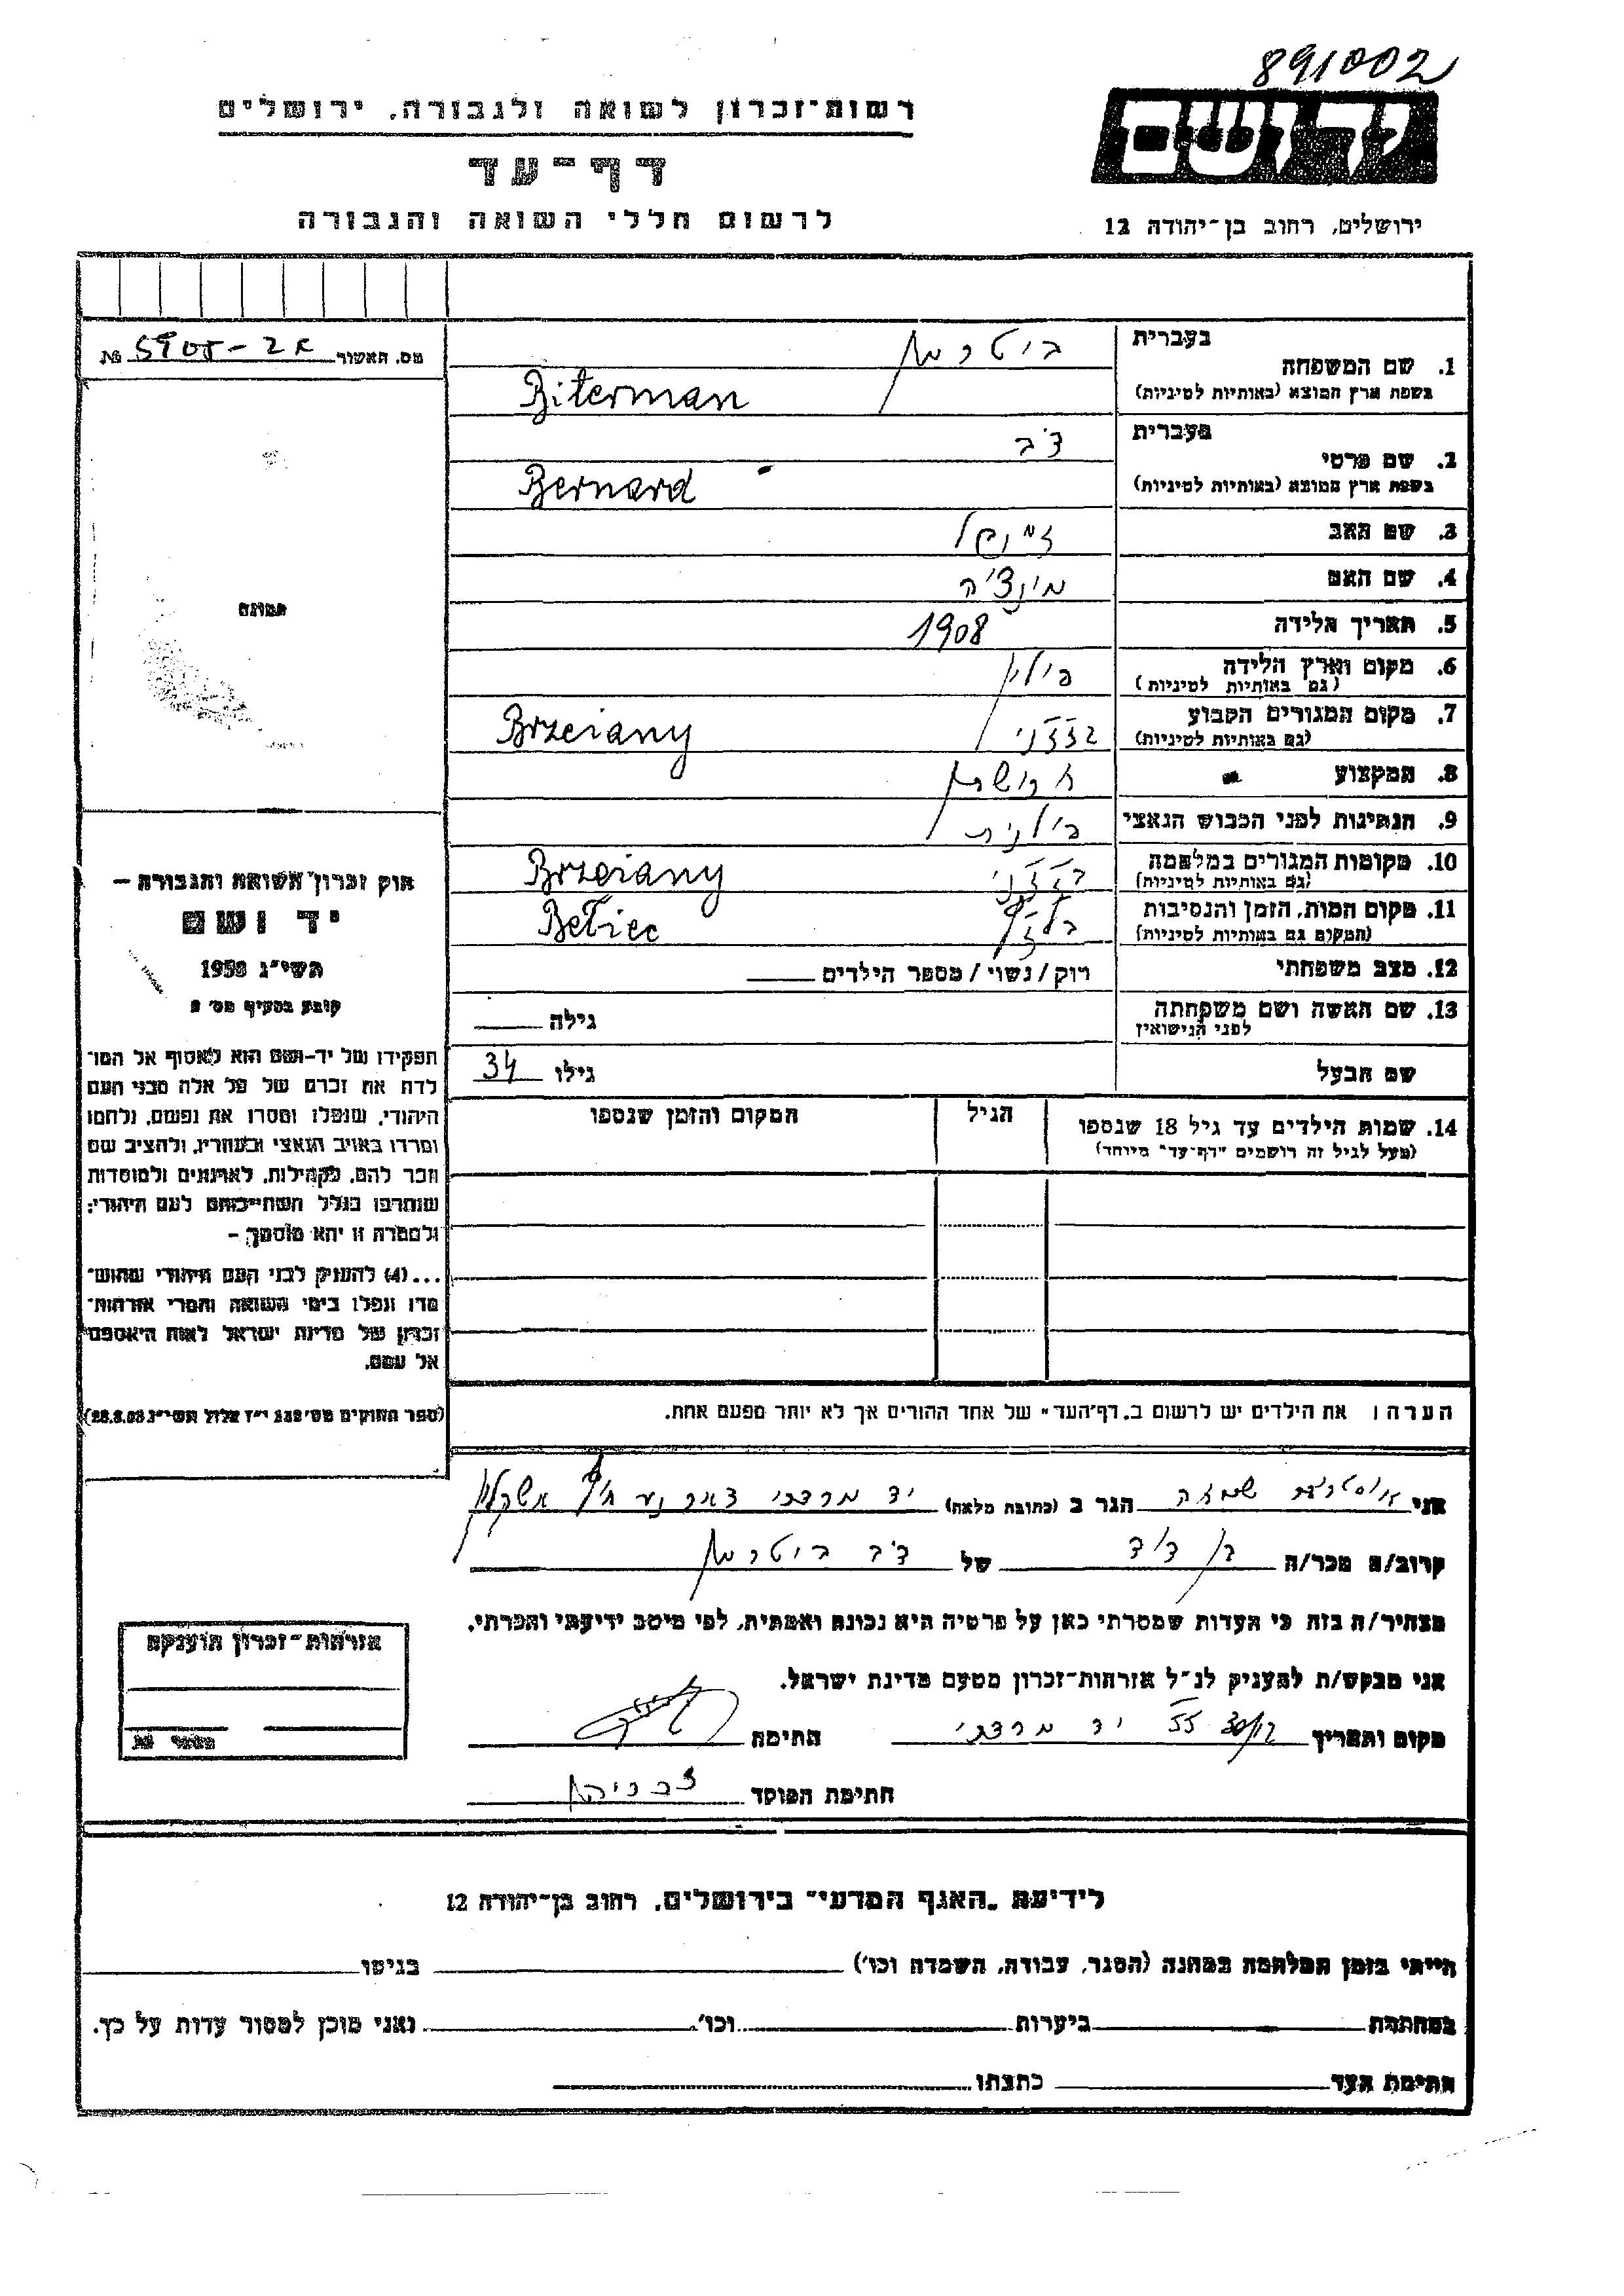 891002
יד ושם
רשות־זכרון לשואה ולגבורה, ירושלים
דף־עד
לרשום חללי השואה והגבורה
ירושלים, רחוב בן־יהודה 12
מס. האשור №
בעברית ביטרמן
1. שם המשפחה
בשפת ארץ המוצא (באותיות לטיניות) Biterman
בעברית דב
2. שם פרטי
בשפת ארץ המוצא (באותיות לטיניות) Bernard
3. שם האב
4. שם האם
5. תאריך הלידה 1908
6. מקום וארץ הלידה פולין
(גם באותיות לטיניות)
7. מקום המגורים הקבוע Brzeiany
(גם באותיות לטיניות)
8. המקצוע
9. הנתינות לפני הכבוש הנאצי פולנית
10. מקומות המגורים במלחמה Brzeiany
(גם באותיות לטיניות)
11. מקום המות, הזמן והנסיבות Bełiec
(המקום גם באותיות לטיניות)
12. מצב משפחתי רוק/נשוי/מספר הילדים
13. שם האשה ושם משפחתה גילה
לפני הנישואין
שם הבעל גילו 34
14. שמות הילדים עד גיל 18 שנספו הגיל המקום והזמן שנספו
(מעל לגיל זה רושמים "דף־עד" מיוחד)
הערה: את הילדים יש לרשום ב„דף־העד" של אחד ההורים אך לא יותר מפעם אחת.
תמונה
חוק זכרון השואה והגבורה –
יד ושם
תשי״ג 1953
קובע בסעיף מס׳ 2
תפקידו של יד-ושם הוא לאסוף אל המו־
לדת את זכרם של כל אלה מבני העם
היהודי, שנפלו ומסרו את נפשם, נלחמו
ומרדו באויב הנאצי ובעוזריו, ולהציב שם
וזכר להם, לקהילות, לארגונים ולמוסדות
שנחרבו בגלל השתייכותם לעם היהודי;
ולמטרה זו יהא מוסמך –
...(4) להעניק לבני העם היהודי שהוש־
מדו ונפלו בימי השואה והמרי אזרחות־
זכרון של מדינת ישראל לאות היאספם
אל עמם.
(ספר החוקים מס׳ 132 י״ז אלול תשי״ג 28.8.53)
אני הגר ב (כתובת מלאה) יד מרדכי דאר נע חוף אשקלון
קרוב/ה מכר/ה בן דוד של דב ביטרמן
מצהיר/ה בזה כי העדות שמסרתי כאן על פרטיה היא נכונה ואמתית, לפי מיטב ידיעתי והכרתי.
אני מבקש/ת להעניק לנ״ל אזרחות־זכרון מטעם מדינת ישראל.
מקום ותאריך יד מרדכי חתימה
חתימת הפוקד
אזרחות־זכרון הוענקה
מספר №
לידיעת „האגף המדעי״ בירושלים, רחוב בן־יהודה 12
הייתי בזמן המלחמה במחנה (הסגר, עבודה, השמדה וכו׳) בגיטו
במחתרת ביערות וכו׳. ואני מוכן למסור עדות על כך.
חתימת העד כתבתו